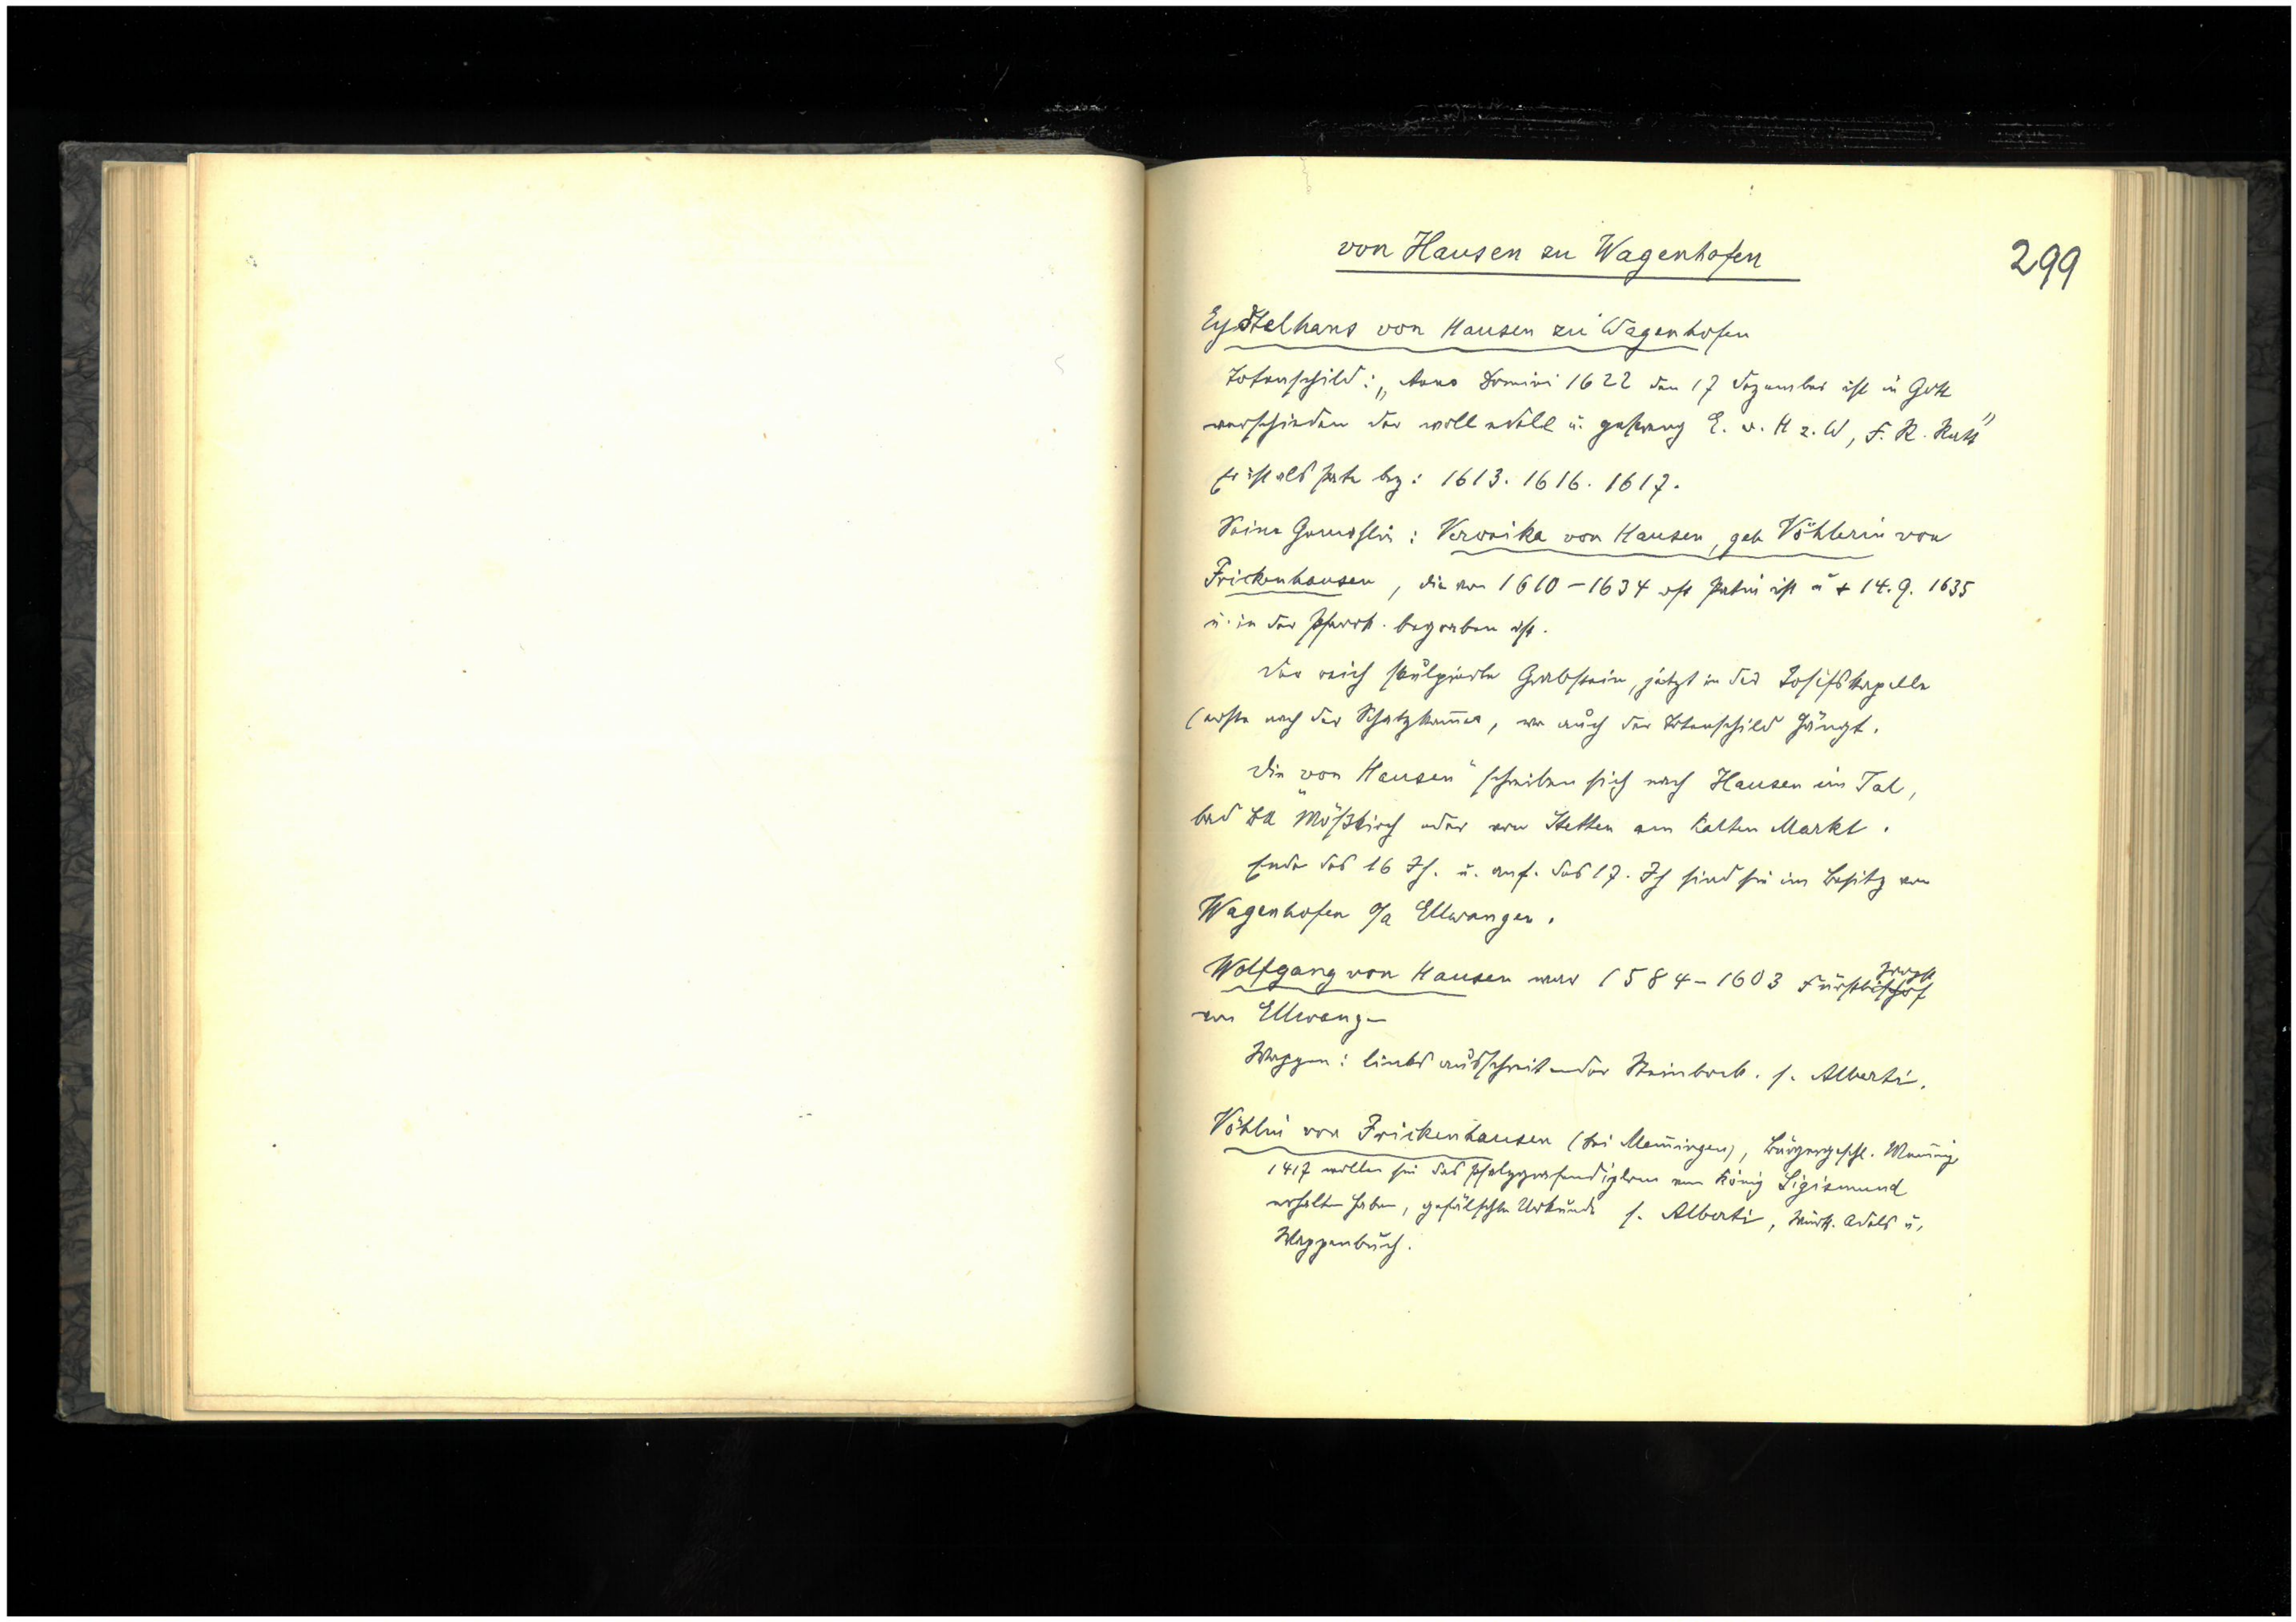 von Hausen zu Wagenhofen
299
Eystelhans von Hausen zu Wagenhofen
Totenschild: „Anno Domini 1622 den 17 Dezember ist in Gott
verschieden der woll edele u. gestreng E. v. H z. W, F. R. Rath"
Er ist als Pate bez: 1613. 1616. 1617.
Seine Gemahlin: Veronika von Hausen, geb Vöhlerin von
Frickenhausen, die von 1610-1634 oft Patin ist u + 14.9. 1635
u. in der Pfarrk. begraben ist.
Der reich skulpierte Grabstein, jetzt in der Josefskapelle
(erste nach der Schatzkam̄er, wo auch der Totenschild hängt.
Die von Hausen" schreiben sich nach Hausen im Tal,
bad BA Mößkirch oder von Stetten am kalten Markt.
Ende des 16 Jh. u. anf. des 17. Jh sind sie im Besitz von
Wagenhofen O/A Ellwangen.
Wolfgang von Hausen war 1584-1603 Fürstbischof
Propst
von Ellwangen
Wappen: links ausschreitender Steinbock. s. Alberti.
Vöhlin von Frickenhausen (bei Mem̄ingen), Bürgergeschl.
1417 wollen sie das Pfalzgrafendiplom von König Sigismund
erhalten haben, gefälschte Urkunde s. Alberti, Württ. Adels u.
Wappenbuch.